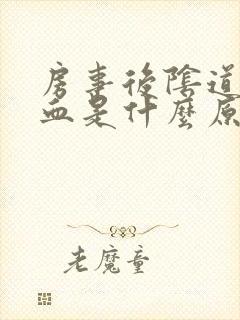 房事後陰道
血是什麼原
老魔童